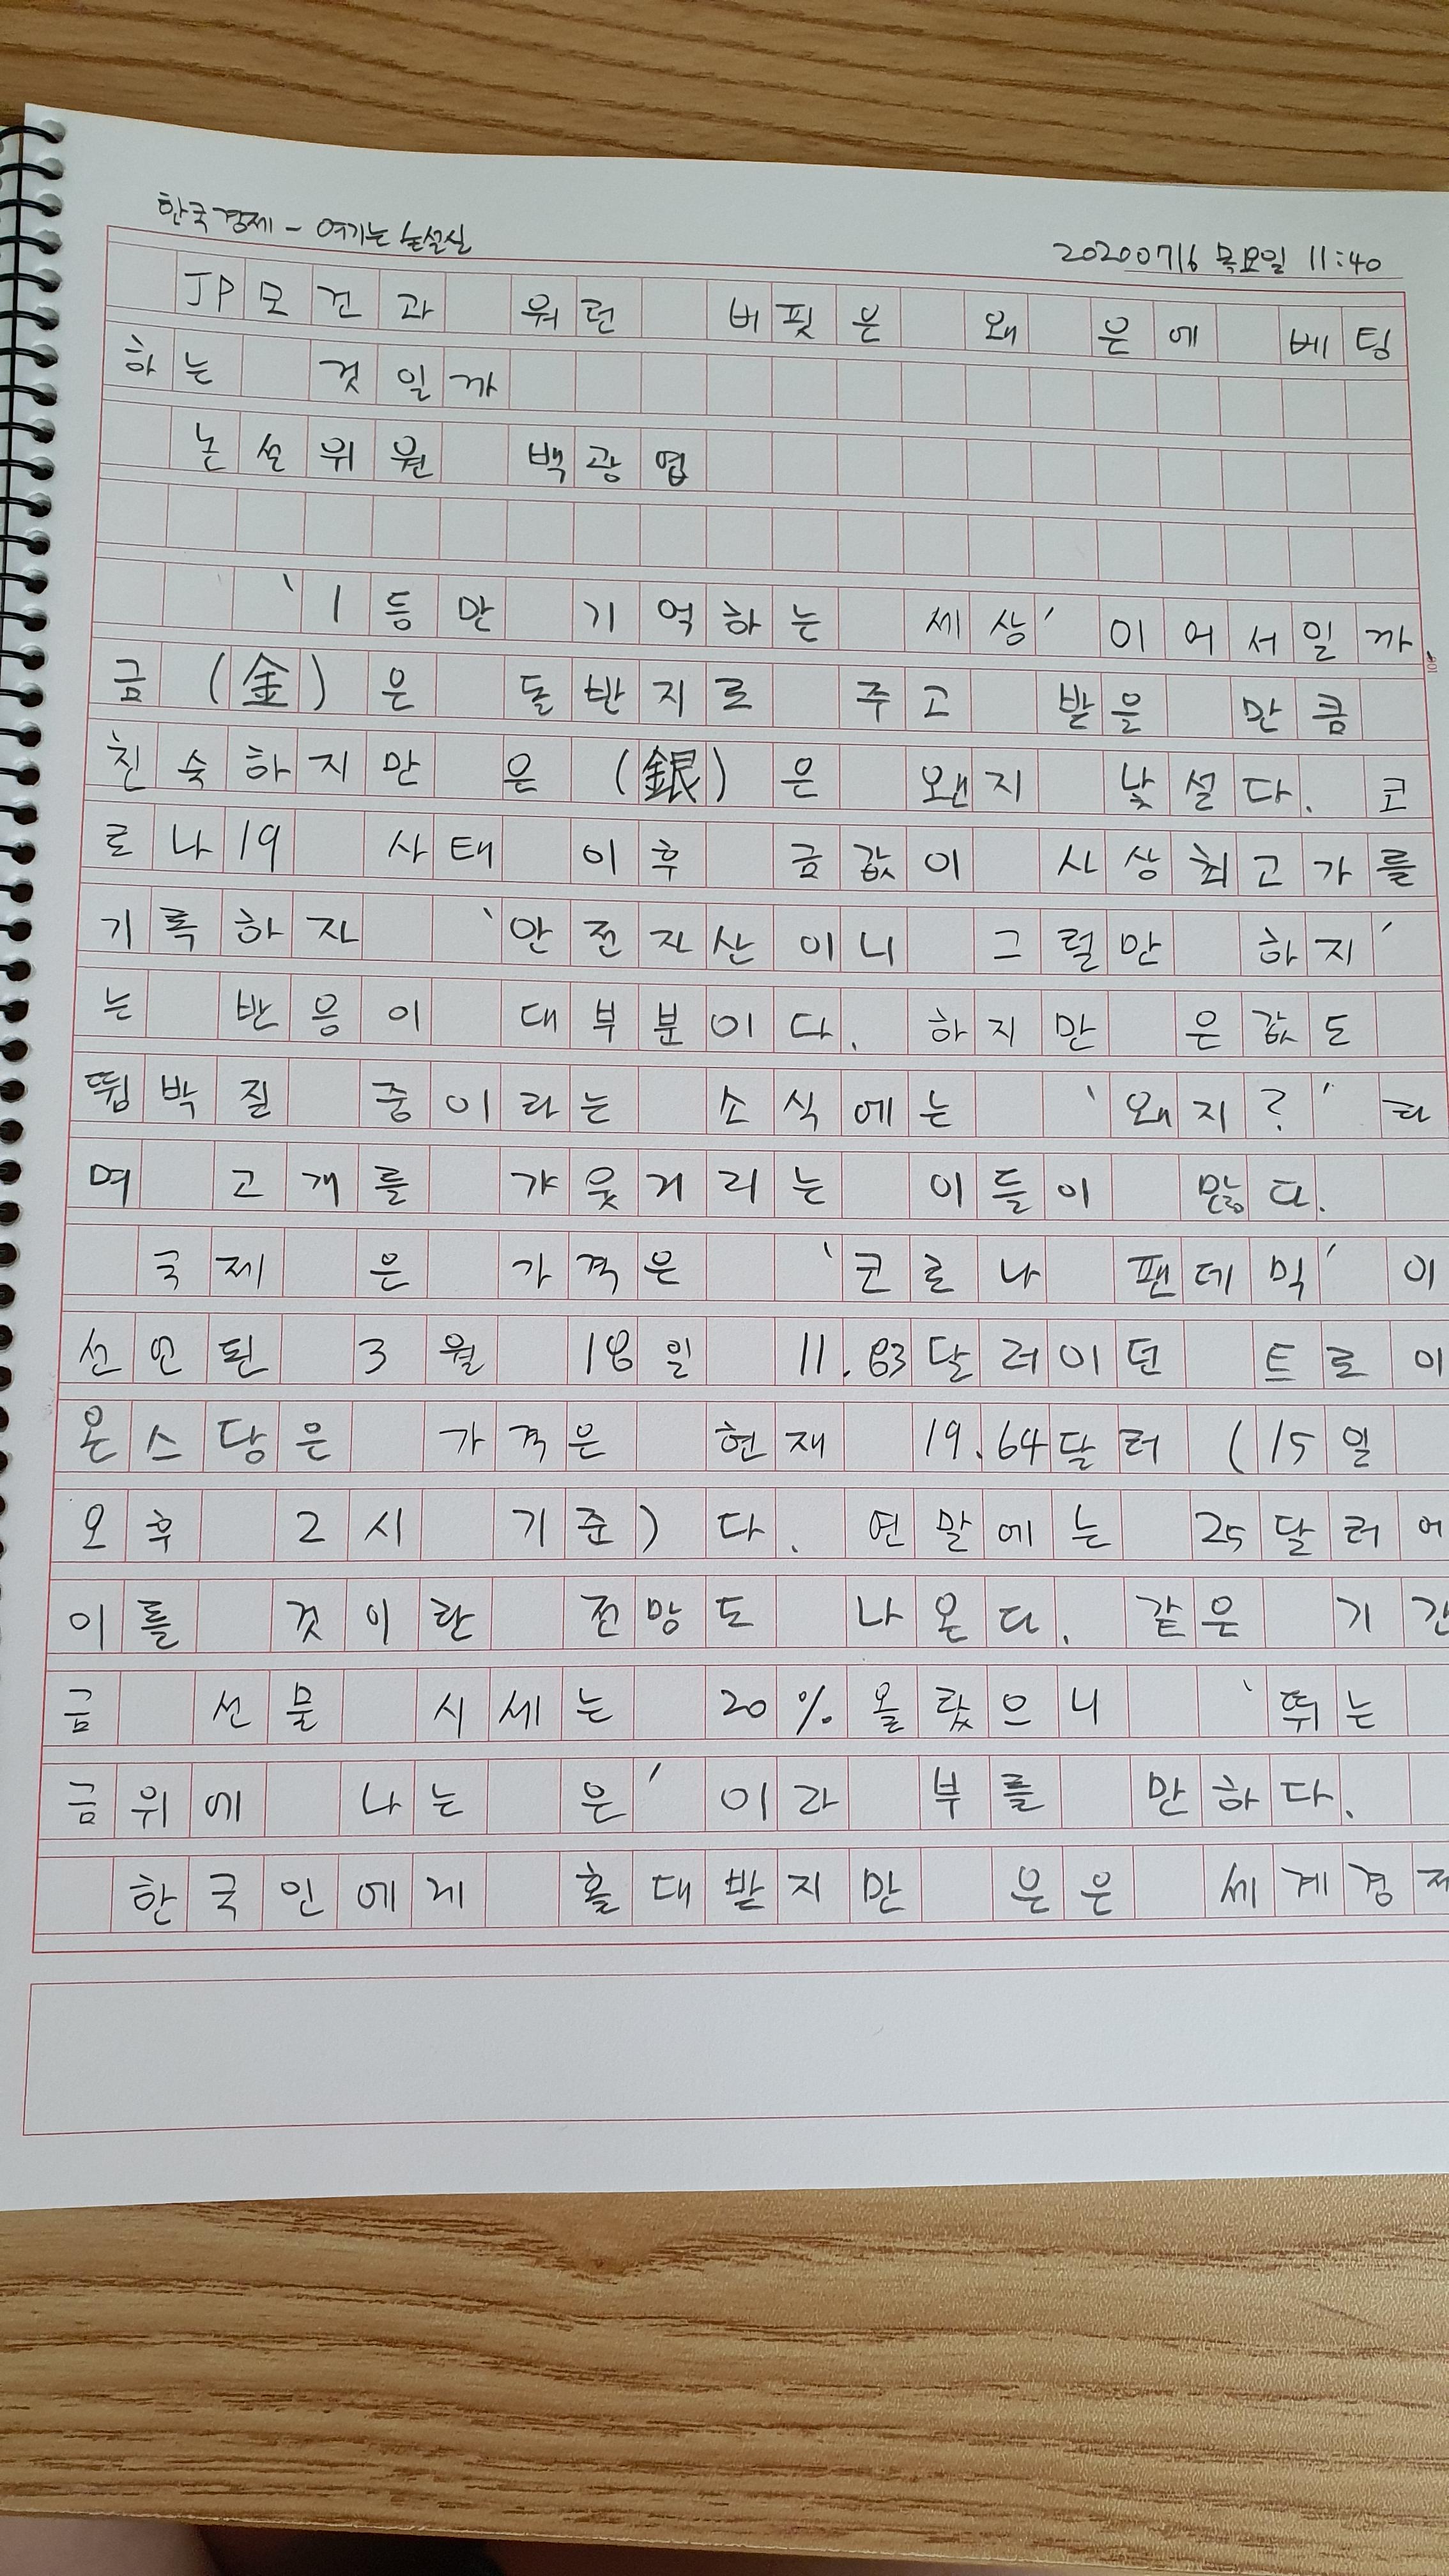 한국경제 - 여기는 논설실
20200716 목요일 11:40
JP모건과 워런 버핏은 왜 은에 베팅
하는 것일까
논설위원 백광엽
'1등만 기억하는 세상'이어서일까.
금(金)은 돌반지로 주고 받을 만큼
친숙하지만 은(銀)은 왠지 낯설다. 코
로나19 사태 이후 금값이 사상최고가를
기록하자 '안전자산이니 그럴만 하지'
는 반응이 대부분이다. 하지만 은값도
뜀박질 중이라는 소식에는 '왜지?'라
며 고개를 갸웃거리는 이들이 많다.
국제 은 가격은 '코로나 팬데믹'이
선언된 3월 18일 11.83달러이던 트로이
온스당은 가격은 현재 19.64달러(15일
오후 2시 기준)다. 연말에는 25달러에
이를 것이란 전망도 나온다. 같은 기간
금 선물 시세는 20% 올랐으니 '뛰는
금위에 나는 은'이라 부를 만하다.
한국인에게 홀대받지만 은은 세계경제